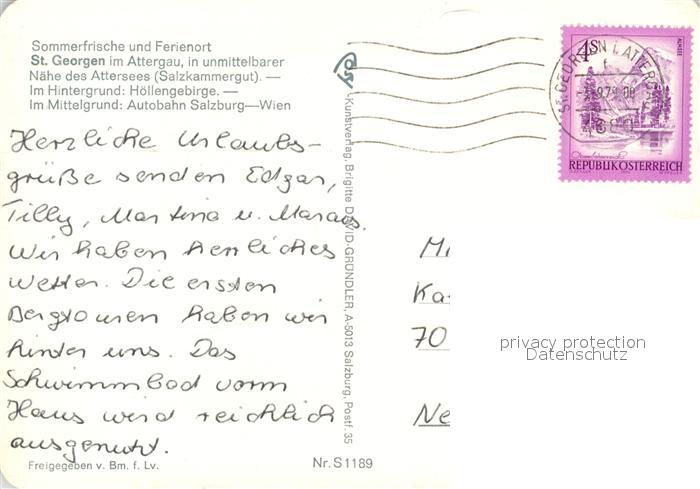 Sommerfrische und Ferienort
St. Georgen im Attergau, in unmittelbarer
Nähe des Attersees (Salzkammergut). —
Im Hintergrund: Höllengebirge. —
Im Mittelgrund: Autobahn Salzburg—Wien
Herzliche Urlaubs-
grüße senden Edgar,
Tilly, Martina u. Marcus.
Wir haben herrliches
Wetter. Die ersten
Bergtouren haben wir
hinter uns. Das
Schwimmbad vorm
Haus wird reichlich
ausgenutzt.
Freigegeben v. Bm. f. Lv.
Nr. S 1189
Kunstverlag, Brigitte DAVID-GRÜNDLER, A-5013 Salzburg, Postf. 35
4S
ALMSEE
ST. GEORGEN I. ATTERGAU
4880
REPUBLIK ÖSTERREICH
Mi
Ka
70
Ne
privacy protection
Datenschutz